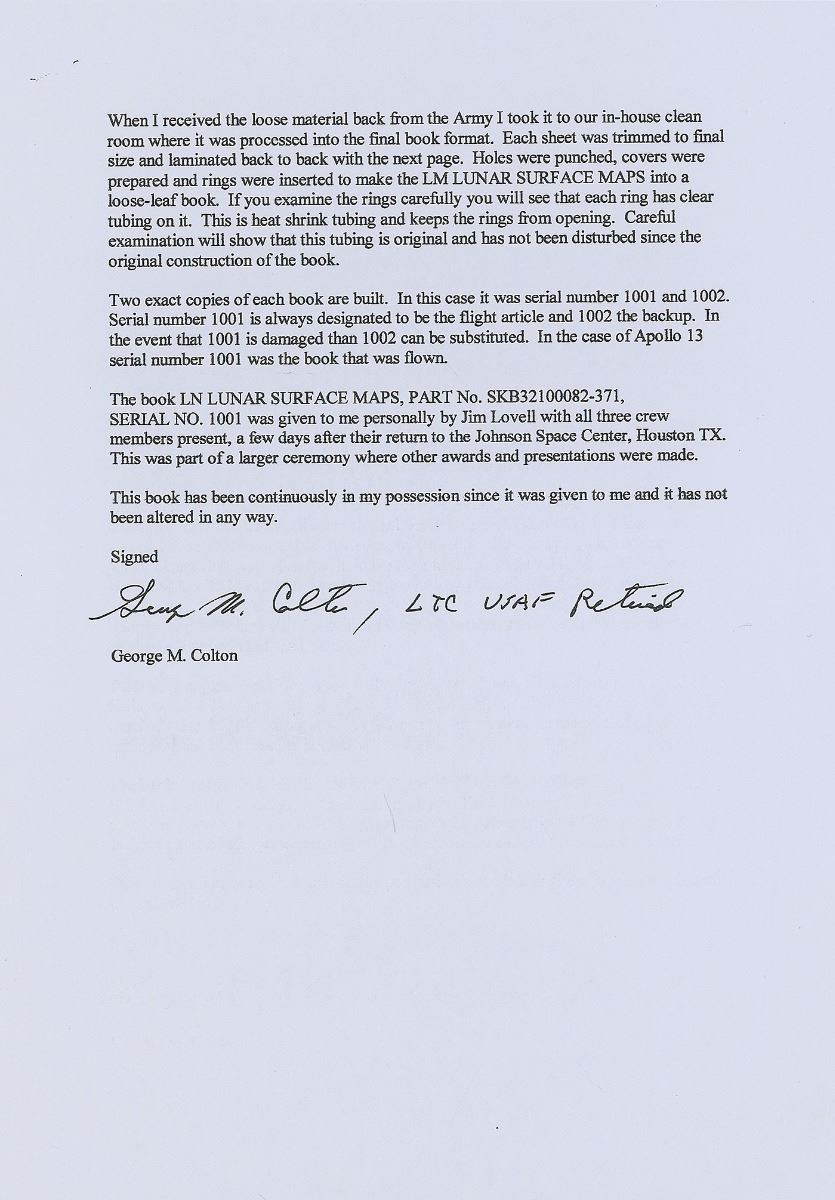 When I received the loose material back from the Army I took it to our in-house clean
room where it was processed into the final book format. Each sheet was trimmed to final
size and laminated back to back with the next page. Holes were punched, covers were
prepared and rings were inserted to make the LM LUNAR SURFACE MAPS into a
loose-leaf book. If you examine the rings carefully you will see that each ring has clear
tubing on it. This is heat shrink tubing and keeps the rings from opening. Careful
examination will show that this tubing is original and has not been disturbed since the
original construction of the book.
Two exact copies of each book are built. In this case it was serial number 1001 and 1002.
Serial number 1001 is always designated to be the flight article and 1002 the backup. In
the event that 1001 is damaged than 1002 can be substituted. In the case of Apollo 13
serial number 1001 was the book that was flown.
The book LN LUNAR SURFACE MAPS, PART No. SKB32100082-371,
SERIAL NO. 1001 was given to me personally by Jim Lovell with all three crew
members present, a few days after their return to the Johnson Space Center, Houston TX.
This was part of a larger ceremony where other awards and presentations were made.
This book has been continuously in my possession since it was given to me and it has not
been altered in any way.
Signed
George M. Colton, LTC USAF Retired
George M. Colton